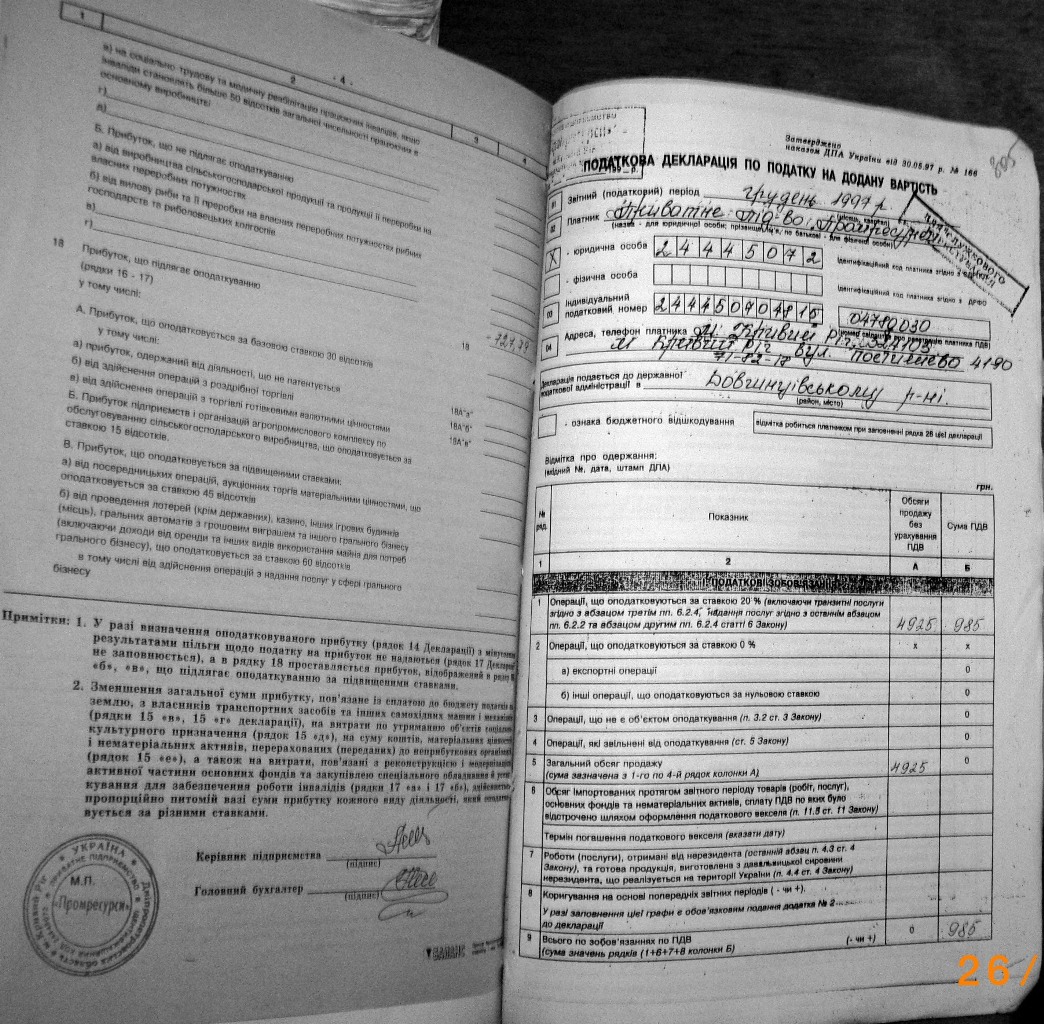 1
2
- 4 -
3
4
в) на соціально трудову та медичну реабілітацію працюючих інвалідів, якщо
інваліди становлять більше 50 відсотків загальної чисельності працюючих в
основному виробництві
г)
д)
Б. Прибуток, що не підлягає оподаткуванню
а) від виробництва сільськогосподарської продукції та продукції її переробки на
власних переробних потужностях
б) від вилову риби та її переробки на власних переробних потужностях рибних
господарств та риболовецьких колгоспів
в)
г)
18 Прибуток, що підлягає оподаткуванню
(рядки 16 - 17)
у тому числі:
18
А. Прибуток, що оподатковується за базовою ставкою 30 відсотків
у тому числі:
а) прибуток, одержаний від діяльності, що не патентується
б) від здійснення операцій з роздрібної торгівлі 18А"а"
в) від здійснення операцій з торгівлі готівковими валютними цінностями 18А"б"
Б. Прибуток підприємств і організацій агропромислового комплексу по 18А"в"
обслуговуванню сільськогосподарського виробництва, що оподатковується за
ставкою 15 відсотків.
В. Прибуток, що оподатковується за підвищеними ставками:
а) від посередницьких операцій, аукціонних торгів матеріальними цінностями, що
оподатковується за ставкою 45 відсотків
б) від проведення лотерей (крім державних), казино, інших ігрових будинків
(місць), гральних автоматів з грошовим виграшем та іншого грального бізнесу
(включаючи доходи від оренди та інших видів використання майна для потреб
грального бізнесу), що оподатковується за ставкою 60 відсотків
в тому числі від здійснення операцій з надання послуг у сфері грального
бізнесу
Примітки: 1. У разі визначення оподатковуваного прибутку (рядок 14 Декларації) з
результатами пільги щодо податку на прибуток не надаються (рядок 17
не заповнюється), а в рядку 18 проставляється прибуток, відображений в
«б», «в», що підлягає оподаткуванню за підвищеними ставками.
2. Зменшення загальної суми прибутку, пов'язане із сплатою до бюджету
землю, з власників транспортних засобів та інших самохідних машин і
(рядки 15 «в», 15 «г» декларації), на витрати по утриманню об'єктів
культурного призначення (рядок 15 «д»), на суму коштів, матеріальних
і нематеріальних активів, перерахованих (переданих) до неприбуткових
(рядок 15 «е»), а також на витрати, пов'язані з реконструкцією і
активної частини основних фондів та закупівлею спеціального обладнання й
кування для забезпечення роботи інвалідів (рядки 17 «а» і 17 «б»),
пропорційно питомій вазі суми прибутку кожного виду діяльності, який
вується за різними ставками.
Керівник підприємства
(підпис)
Головний бухгалтер
(підпис)
УКРАЇНА
М.П.
«Промресурси»
805
Затверджено
наказом ДПА України від 30.05.97 р. № 166
ПОДАТКОВА ДЕКЛАРАЦІЯ ПО ПОДАТКУ НА ДОДАНУ ВАРТІСТЬ
01 Звітний (податковий) період грудень 1997 р.
02 Платник
(назва - для юридичної особи; прізвище, ім'я, по батькові - для фізичної особи)
X - юридична особа 24445072
Ідентифікаційний код платника згідно з
- фізична особа
Ідентифікаційний код платника згідно з ДРФО
03 Індивідуальний
податковий номер 244450704815 04780030
04 Адреса, телефон платника
м Кривий Ріг вул. постишево 4190
Декларація подається до державної
податкової адміністрації в Довгинцівському р-ні.
(район, місто)
- ознака бюджетного відшкодування
відмітка робиться платником при заповненні рядка 26 цієї декларації
Відмітка про одержання:
(вхідний №, дата, штамп ДПА)
грн.
№ ряд.
Показник
Обсяги продажу без урахування ПДВ
Сума ПДВ
1 2 А Б
ПОДАТКОВІ ЗОБОВ'ЯЗАННЯ
1 Операції, що оподатковуються за ставкою 20 % (включаючи транзитні послуги
згідно з абзацом третім пп. 6.2.4, надання послуг згідно з останнім абзацом
пп. 6.2.2 та абзацом другим пп. 6.2.4 статті 6 Закону) 4925 985
2 Операції, що оподатковуються за ставкою 0 % x x
а) експортні операції 0
б) інші операції, що оподатковуються за нульовою ставкою 0
3 Операції, що не є об'єктом оподаткування (п. 3.2 ст. 3 Закону) 0
4 Операції, які звільнені від оподаткування (ст. 5 Закону) 0
5 Загальний обсяг продажу
(сума зазначена з 1-го по 4-й рядок колонки А) 4925 0
6 Обсяг імпортованих протягом звітного періоду товарів (робіт, послуг),
основних фондів та нематеріальних активів, сплату ПДВ по яких було
відстрочено шляхом оформлення податкового векселя (п. 11.5 ст. 11 Закону)
Термін погашення податкового векселя (вказати дату)
7 Роботи (послуги), отримані від нерезидента (останній абзац п. 4.3 ст. 4
Закону), та готова продукція, виготовлена з давальницької сировини
нерезидента, що реалізується на території України (п. 4.4 ст. 4 Закону)
8 Коригування на основі попередніх звітних періодів ( - чи +).
У разі заповнення цієї графи є обов'язковим подання додатка № 2
до декларації 0 985
9 Всього по зобов'язаннях по ПДВ (- чи +)
(сума значень рядків (1+6+7+8 колонки Б)
26/